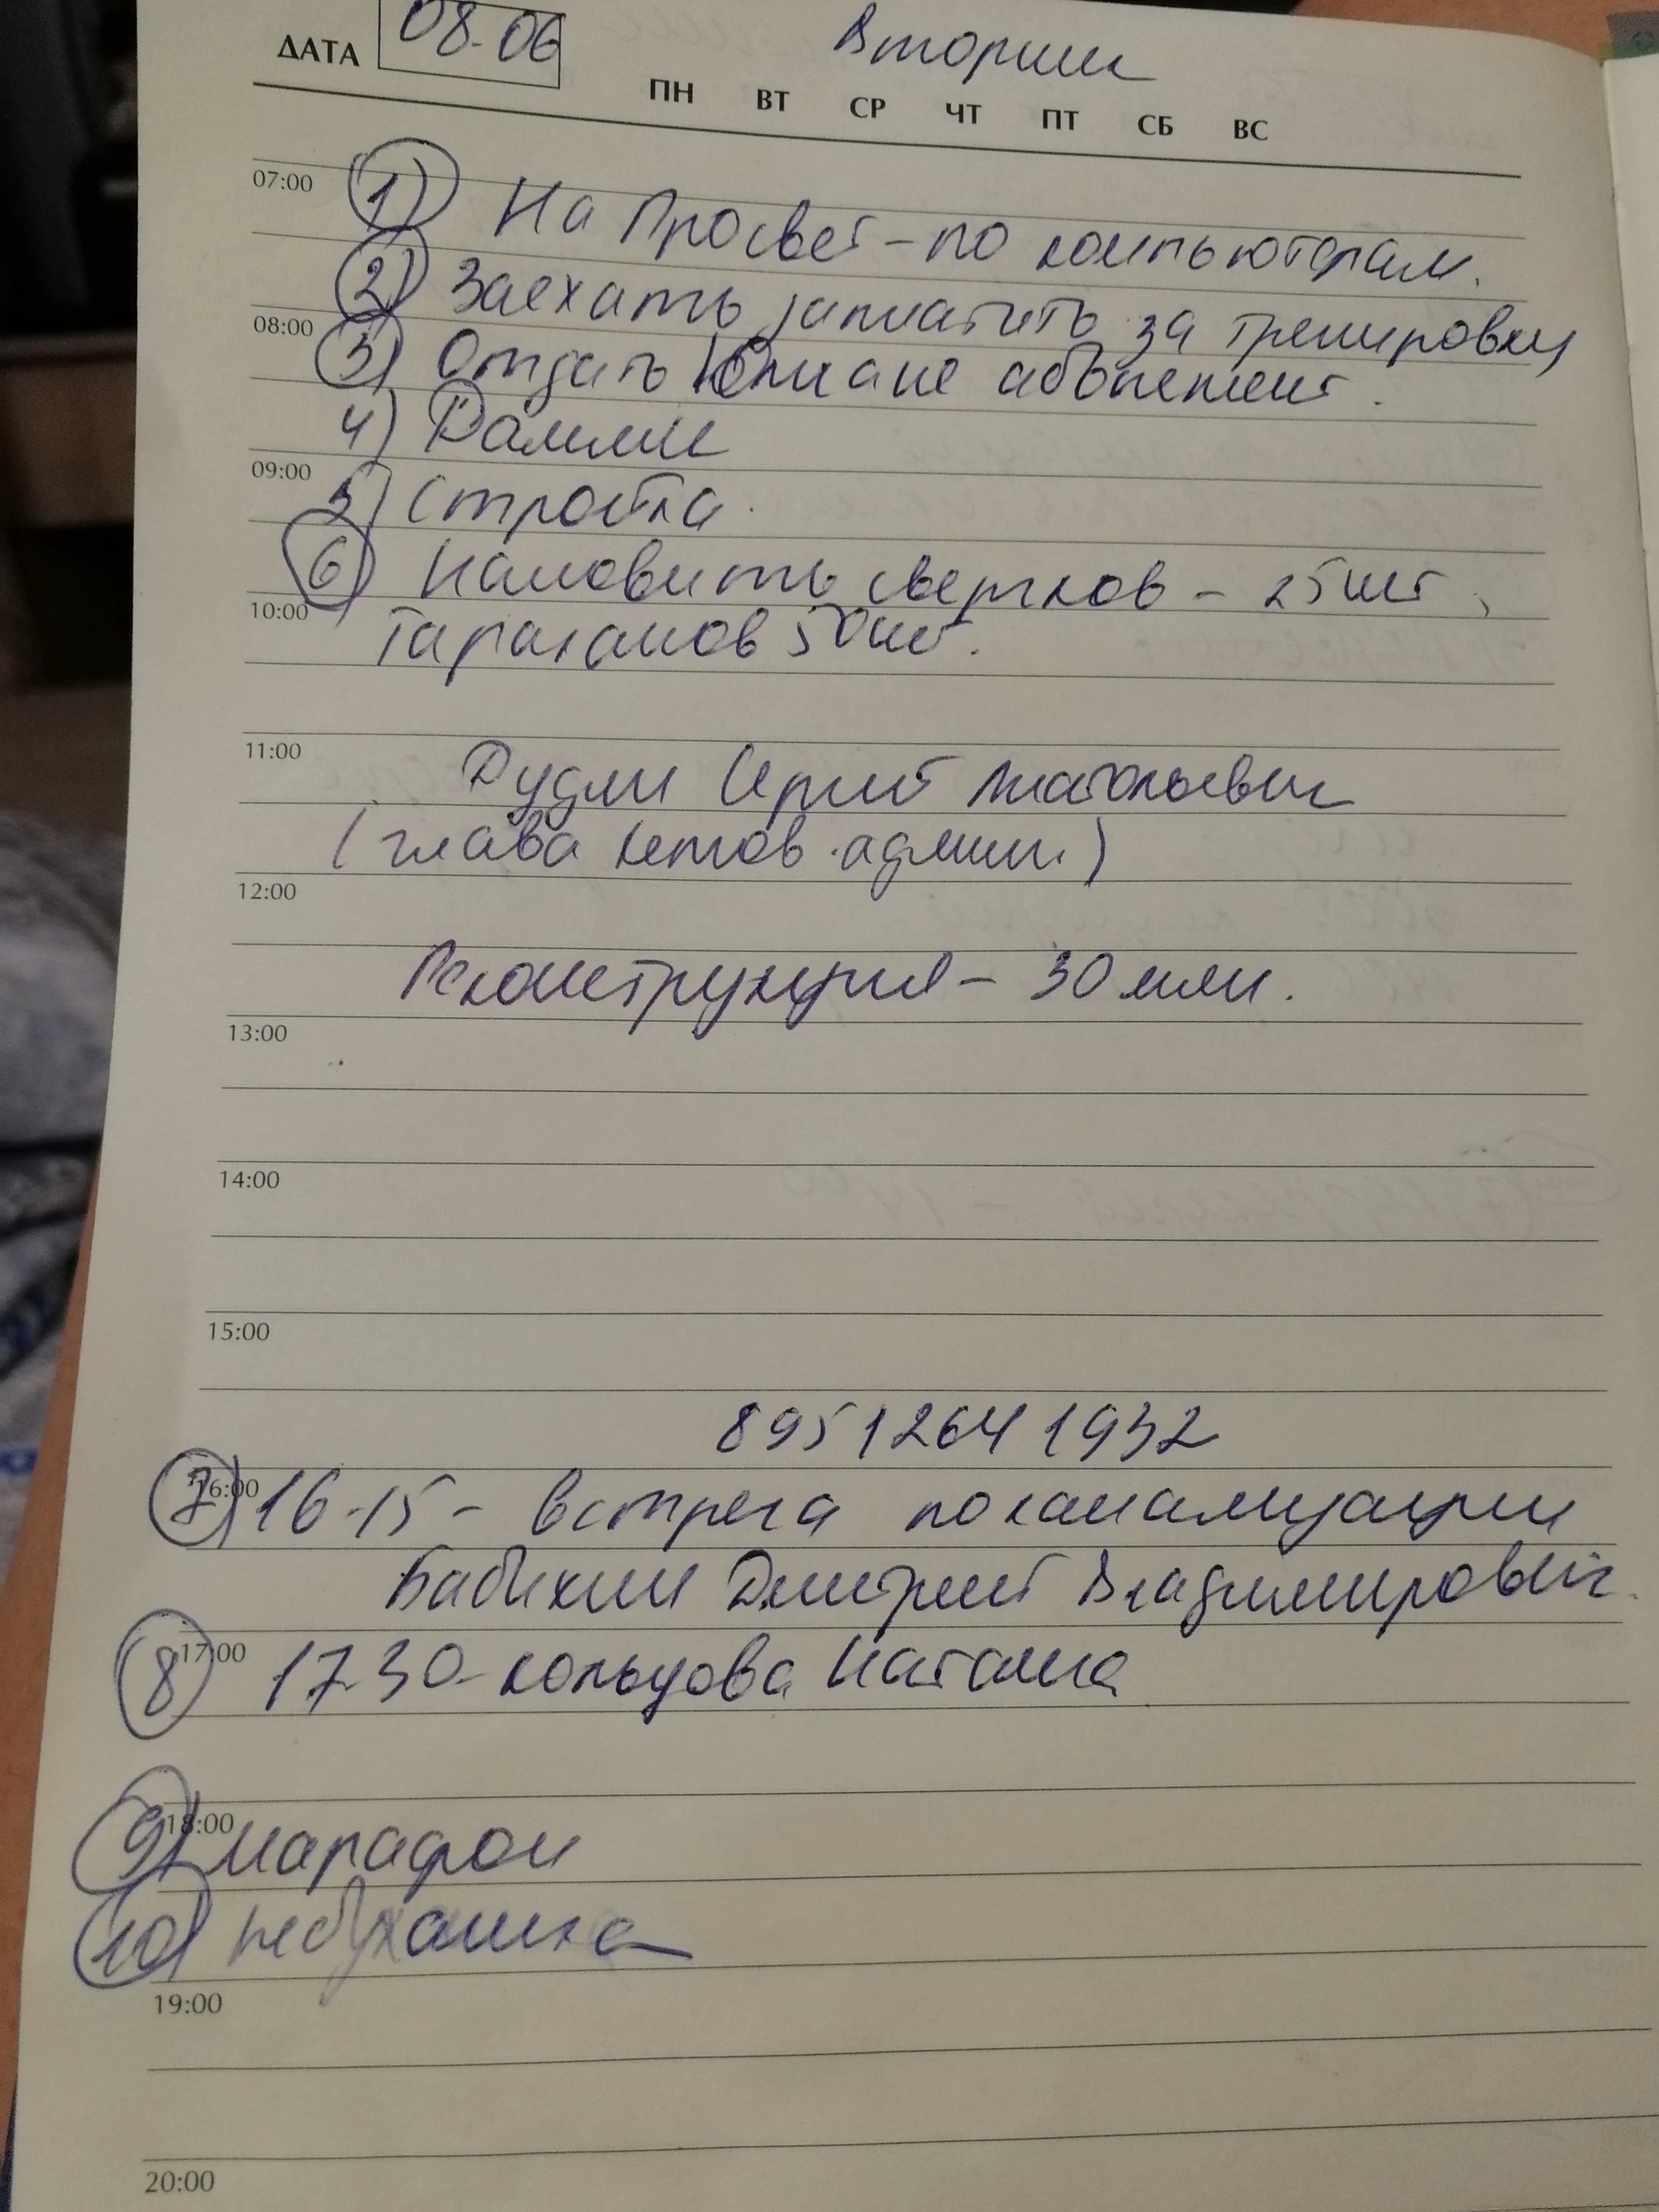 ДАТА 08-06 Вторник
ПН ВТ СР ЧТ ПТ СБ ВС
07:00 1) На Просвет - по компьютерам.
2) Заехать заплатить за тренировку
08:00 3) Отдать абонемент.
4)
09:00
5) Стройка.
6) Наловить сверчков - 25 шт,
10:00 тараканов 50 шт.
11:00
Дудин Сергей Анатольевич
(глава Кетов. админ.)
12:00
Реконструкция - 30 млн.
13:00
14:00
15:00
8951264 1932
16:00 7) 16-15 - встреча по канализации
Бабихин Дмитрий Владимирович.
17:00 8) 17-30 - Кольцова Наташа
18:00 9) Марафон
10)
19:00
20:00